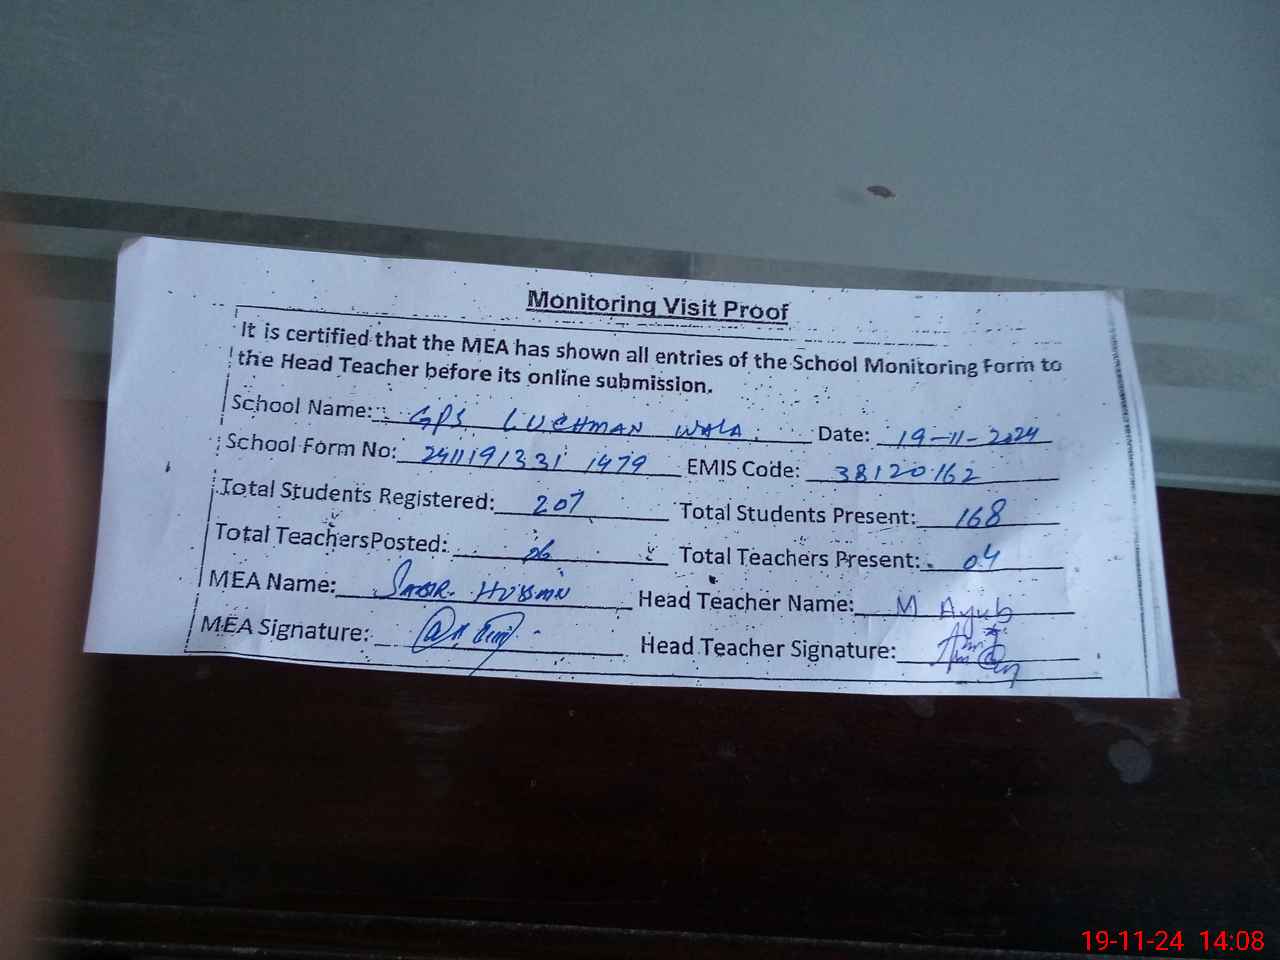 Monitoring Visit Proof
It is certified that the MEA has shown all entries of the School Monitoring Form to
the Head Teacher before its online submission.
School Name: GPS LUCHMAN WALA Date: 19-11-2024
School Form No: 2411191331 1479 EMIS Code: 38120162
Total Students Registered: 207 Total Students Present: 168
Total TeachersPosted: 06 Total Teachers Present: 04
MEA Name: Head Teacher Name: M Ayub
MEA Signature: Head Teacher Signature:
19-11-24 14:08